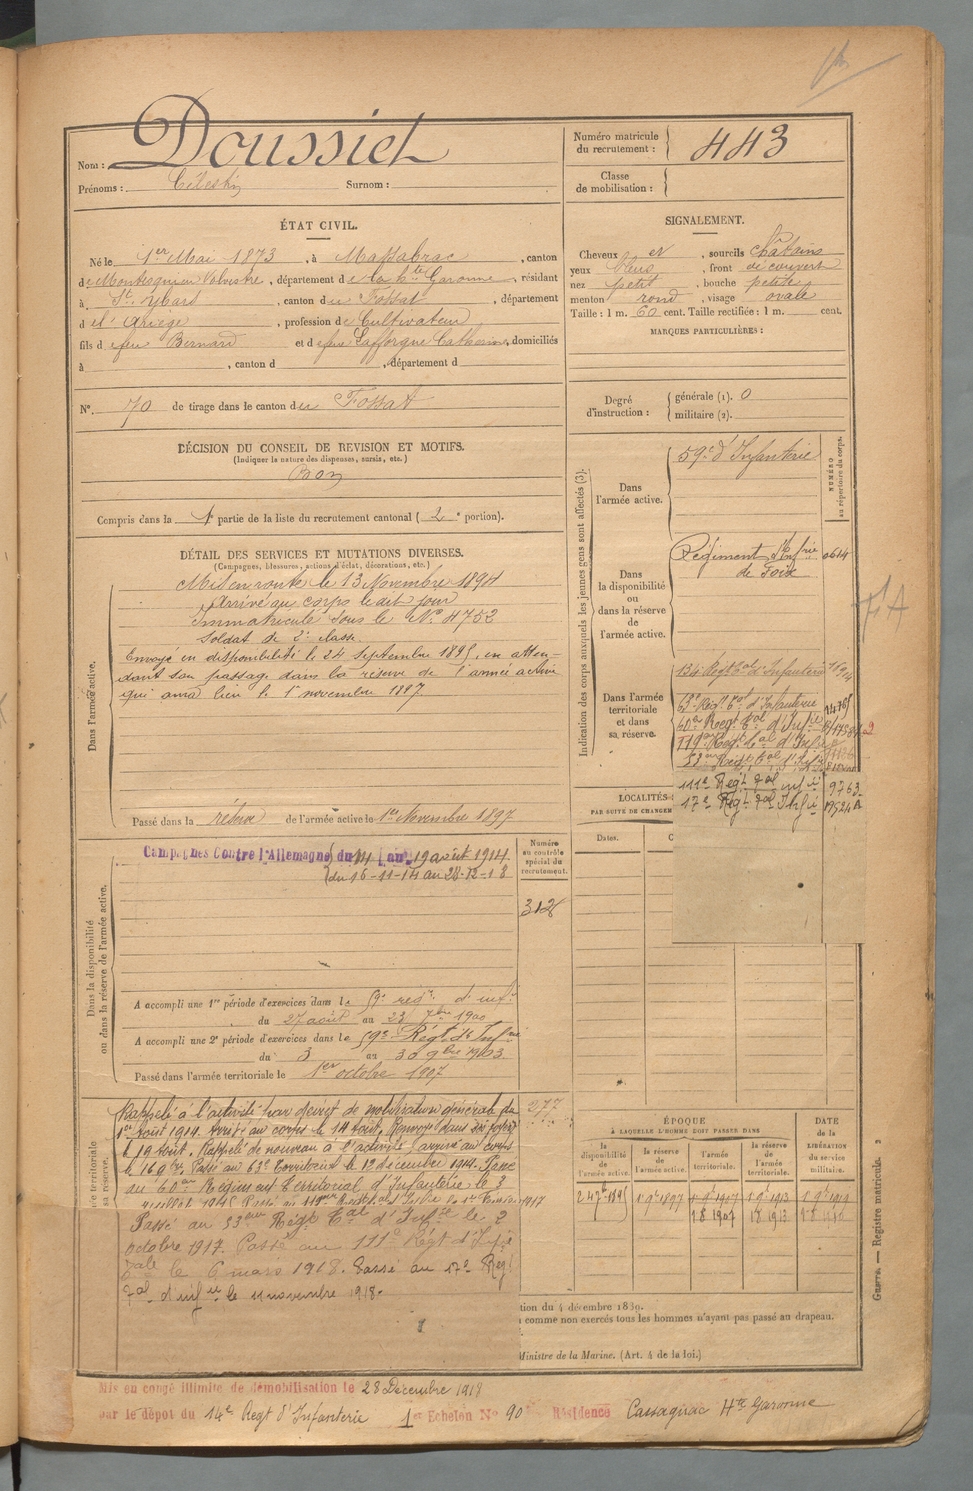 Nom : Doussiet
Prénoms : Célestin Surnom :
Numéro matricule du recrutement : 443
Classe de mobilisation :
ÉTAT CIVIL.
Né le 1er Mai 1873, à Massabrac, canton
de Montesquieu Volvestre, département de la Hte Garonne, résidant
à St. Ybars, canton du Fossat, département
d el' Ariège, profession de Cultivateur
fils d e feu Bernard et d e feue Lafforgue Catherine, domiciliés
à , canton d , département d
N° 70 de tirage dans le canton du Fossat
SIGNALEMENT.
Cheveux et , sourcils châtains
yeux bleus , front découvert
nez petit , bouche petite
menton rond , visage ovale
Taille : 1 m. 60 cent. Taille rectifiée : 1 m. cent.
MARQUES PARTICULIÈRES :
Degré d'instruction : générale (1). 0
militaire (2).
DÉCISION DU CONSEIL DE REVISION ET MOTIFS.
(Indiquer la nature des dispenses, sursis, etc.)
Bon
Compris dans la 1 partie de la liste du recrutement cantonal ( 2e portion).
DÉTAIL DES SERVICES ET MUTATIONS DIVERSES.
(Campagnes, blessures, actions d'éclat, décorations, etc.)
Dans l'armée active.
Mis en route le 13 Novembre 1894
Arrivé au corps le dit jour
Immatriculé sous le No 4752
Soldat de 2e classe.
Envoyé en disponibilité le 24 septembre 1895, en atten-
dant son passage dans la réserve de l'armée active
qui aura lieu le 1er novembre 1897
Passé dans la réserve de l'armée active le 1er Novembre 1897
Indication des corps auxquels les jeunes gens sont affectés (3).
NUMÉRO au répertoire du corps.
Dans l'armée active.
59e d'Infanterie
Dans la disponibilité ou dans la réserve de l'armée active.
Régiment d'Infrie 0614
de Foix
Dans l'armée territoriale et dans sa réserve.
134 Regt tal d'Infanterie
63e Regt tal d'Infanterie
60e Regt tal d'Infie
119e Regt tal d'Infie
53me Regt tal d'Infie
111e Regt tal infie 9763
17e Regt tal Infie
LOCALITÉS
PAR SUITE DE CHANGEM
Dates.
Dans la disponibilité ou dans la réserve de l'armée active.
Campagnes Contre l'Allemagne du 14 au 19 août 1914
du 16-11-14 au 28-12-18
Numéro au contrôle spécial du recrutement.
A accompli une 1re période d'exercices dans le 59e regt d'infie
du 27 août au 23 7bre 1900
A accompli une 2e période d'exercices dans le 59e Régt d'Infrie
du 3 au 30 9bre 1903
Passé dans l'armée territoriale le 1er octobre 1907
Rappelé à l'activité par décret de mobilisation générale du
1er Août 1914. Arrivé au corps le 14 Août. Renvoyé dans ses foyers
le 19 Août. Rappelé de nouveau à l'activité, arrivé au corps
le 16 9bre Passé au 63e Territorial le 12 décembre 1914. Passé
au 60e Régiment Territorial d'Infanterie le 3
1917
277
Passé au 53eme Régt Tal d'Infrie le 2
octobre 1917. Passé au 111e Régt d'Infie
Tale le 6 mars 1918. Passé au 17e Régt
Tal d'infie le 11 novembre 1918.
ÉPOQUE
À LAQUELLE L'HOMME DOIT PASSER DANS
la disponibilité de l'armée active.
la réserve de l'armée active.
l'armée territoriale.
la réserve de l'armée territoriale.
DATE de la LIBÉRATION du service militaire.
1 8 1907
1 8 1913
tion du 4 décembre 1889.
comme non exercés tous les hommes n'ayant pas passé au drapeau.
Ministre de la Marine. (Art. 4 de la loi.)
Guerre. — Registre matricule.
Mis en congé illimité de démobilisation le 28 Décembre 1918
par le dépôt du 14e Regt d'Infanterie 1er Echelon No 90 Résidence Cassagnac Hte Garonne